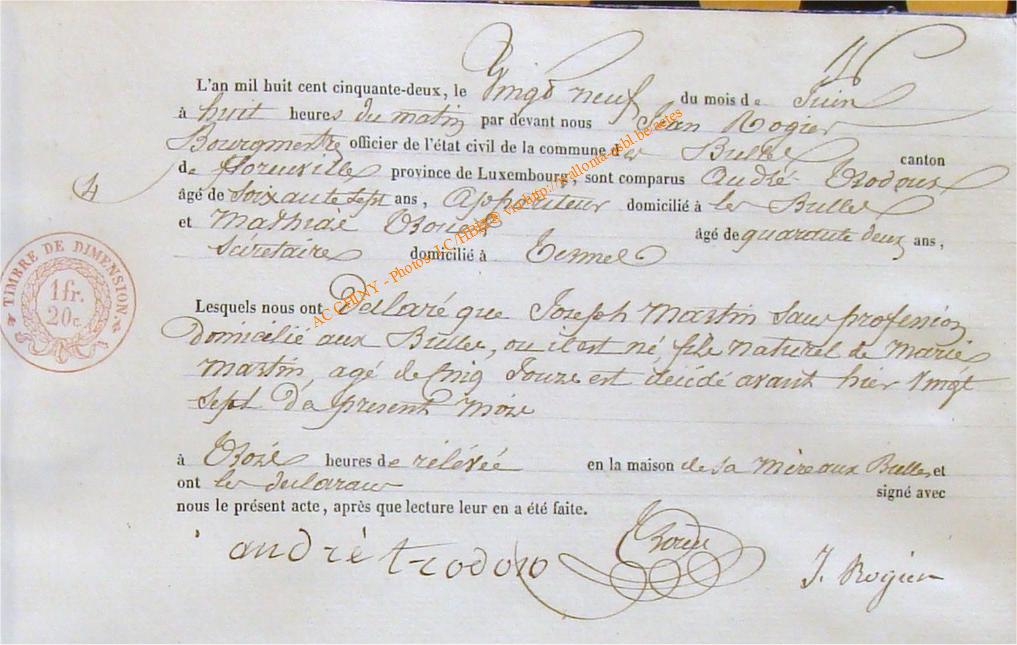 L'an mil huit cent cinquante-deux, le Vingt neuf du mois de Juin
à huit heures du matin par devant nous Jean Rogier
Bourgmestre officier de l'état civil de la commune des Bulles canton
de florenville province de Luxembourg, sont comparus André Trodoux
âgé de Soixante sept ans, Appariteur domicilié à les Bulles
et Mathias âgé de quarante deux ans,
Secretaire domicilié à Termes
4
TIMBRE DE DIMENSION
1 fr.
20 c.
AC CHINY - Photos LC/ http://gallonia-asbl.be/actes
Lesquels nous ont Déclaré que Joseph Martin Sans profession
Domicilié aux Bulles, ou il est né, fils naturel de Marie
Martin, agé de Cinq Jours est décédé avant hier Vingt
Sept du present Mois
à Trois heures de rélévée en la maison de sa Mère aux Bulles, et
ont les declarans signé avec
nous le présent acte, après que lecture leur en a été faite.
andrè trodoux
J. Rogier